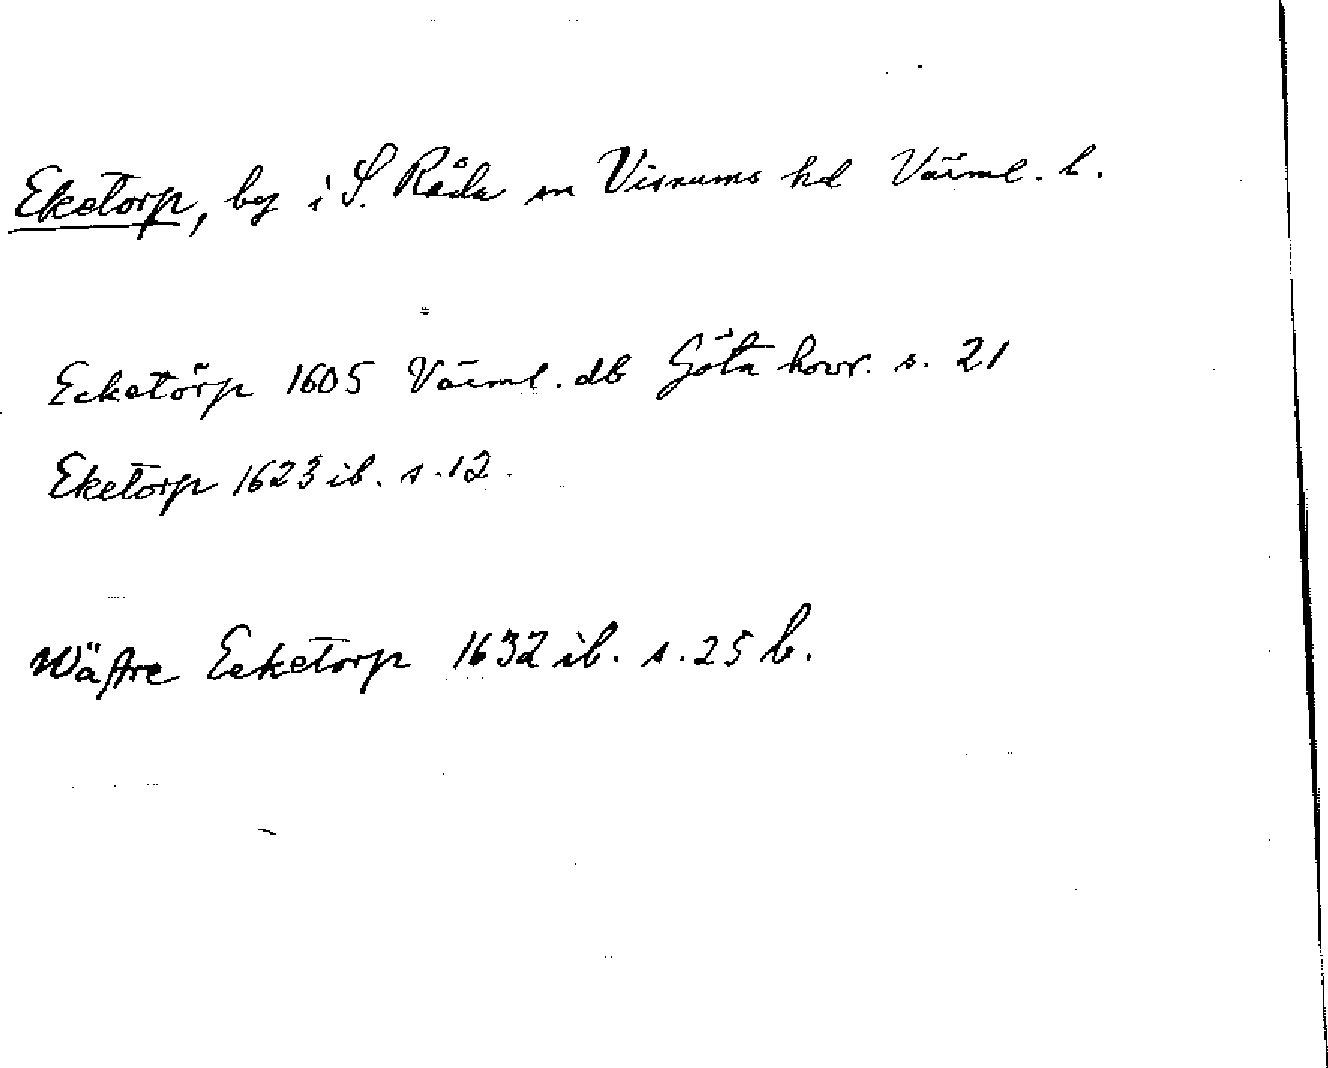 Eketorp, by i S. Råda sn Visnums hd Värml. l.
Ecketörp 1605 Värml. db Göta hovr. s. 21
Eketorp 1623 ib. s. 12.
Wästre Ecketorp 1632 ib. s. 25 b.